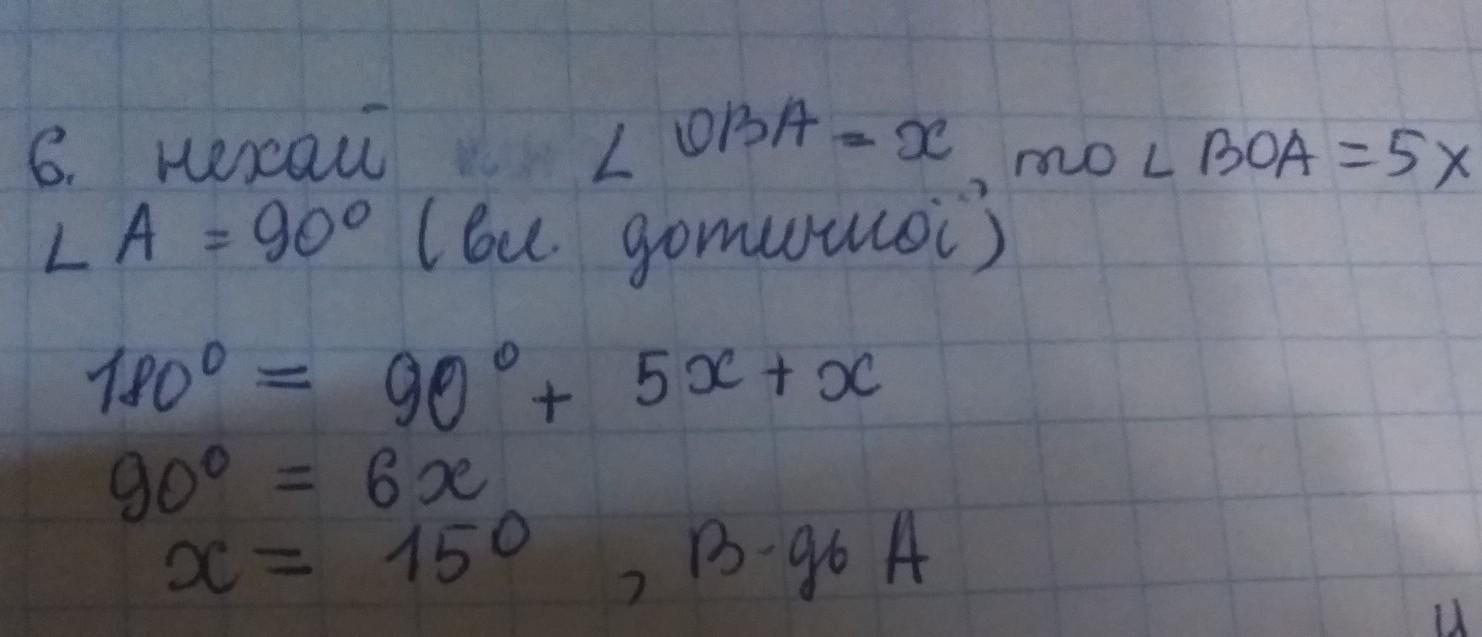 6. нехай ∠ OBA = x, то ∠ BOA = 5x
∠ A = 90° (вл. дотичної)
180° = 90° + 5x + x
90° = 6x
x = 15°, В-дь А